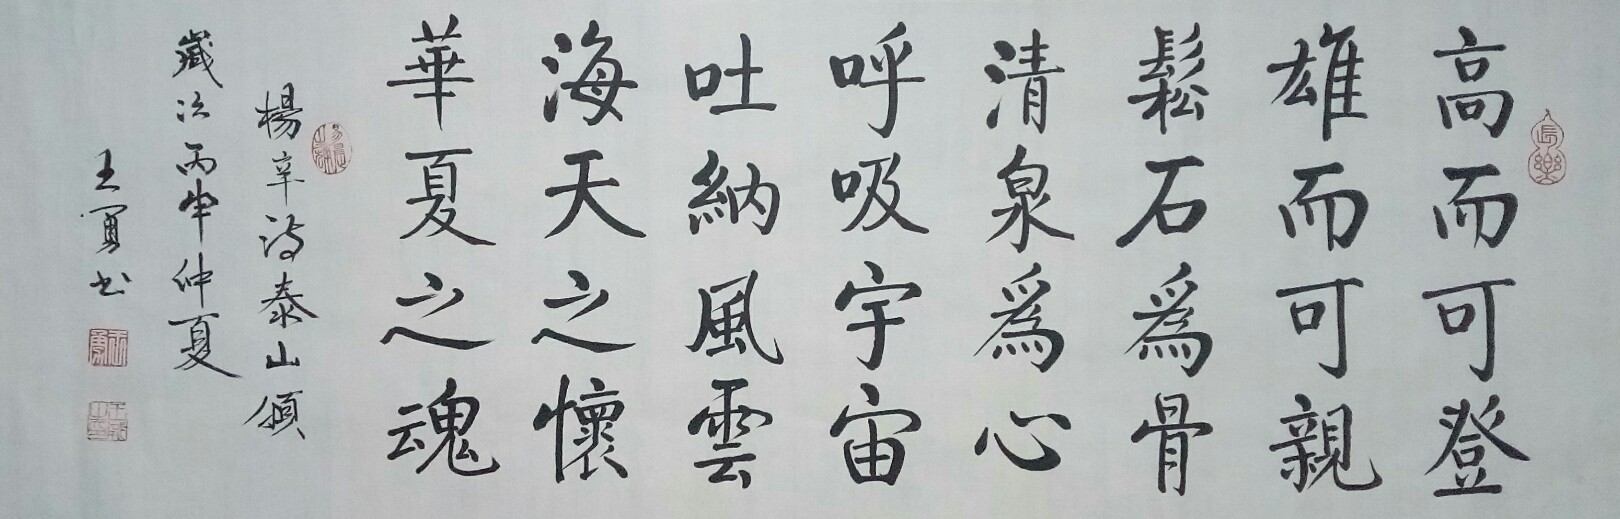 高而可登
雄而可親
鬆石為骨
清泉為心
呼吸宇宙
吐納風雲
海天之懷
華夏之魂
楊辛詩泰山頌
歲次丙申仲夏
王勇书
長樂